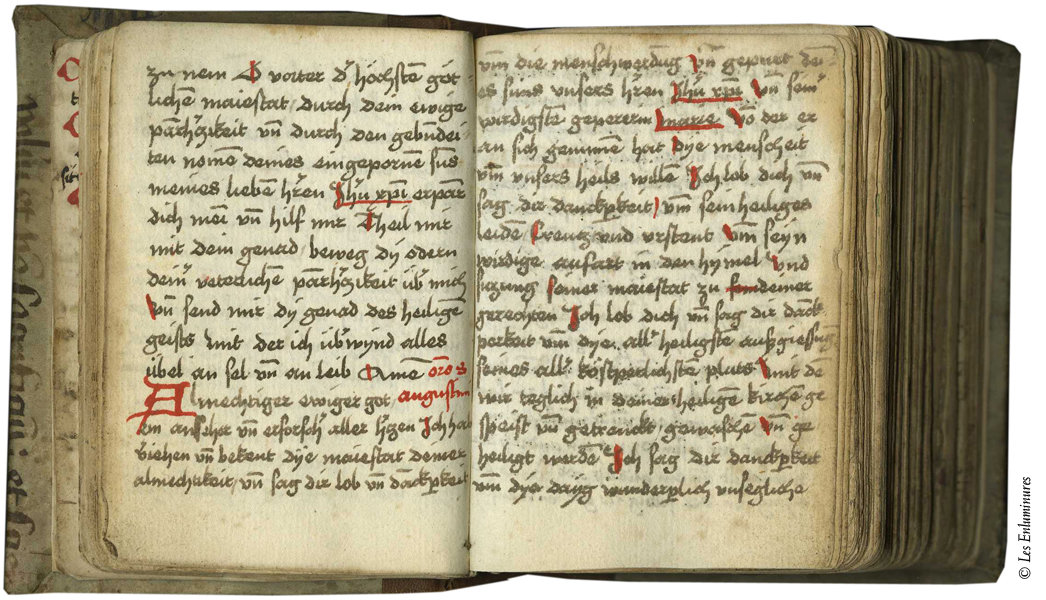 zu nem O vorter d' höchsten göt-
lichē maiestat / durch dem ewige
parhᵉzikeit vn̄ durch den gebn̄dei
ten nomē deines eingepornē suns
meines liebē hr̄en Jhū xpī erparⸯ
dich mei vn̄ hilf mir Theil mit
mit dem genad / beweg dy odern
deinⸯ veterlichē parhᵉzikeit ubⸯ mich
vn̄ send mir dy genad des heiligē
geists mit der ich ubⸯwynd alles
übel an sel vn̄ an leib Amē oro s
Almechtiger ewiger got augustini
ein anseher vn̄ erforschⸯ aller hᵉzen Ich hab
viehen vn̄ bekent dye maiestat deiner
almechtikeit / vn̄ sag dir lob vn̄ danckperkeit
vm̄ die menschwerdūg vn̄ gepurt dei-
es suns vnsers hr̄en Jhū xpī vn̄ sein
wirdigste gepererin marie vō der er
an sich genumē hat dye menscheit
vm̄ vnsers heils wille Ich lob dich vn̄
sag dir danckperkeit / vm̄ sein heiliges
leidē Creutz vnd vrstent vm̄ seyn
wirdige aufart in den hymel vnd
siczung seiner maiestat zu deiner
gerechten Ich lob dich vn̄ sag dir danck
perkeit vm̄ dye allⸯ heiligste außgiessung
seines allⸯ köstperlichste pluts mit dē
wir teglich in deiner heiligē kirchē ge
speist vn̄ getrenckt / gewaschē vn̄ ge
heiligt werdē Ich sag dir danckperkeit
vm̄ dye dayg wunderperlich vnsegliche
© Les Enluminures